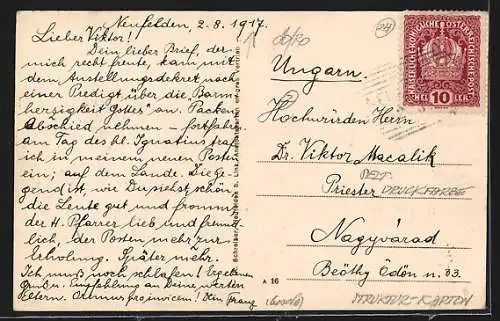 Neufelden, 2.8.1917.
Lieber Viktor!
Dein lieber Brief, der
mich recht freute, kam mit
dem Anstellungsdekret nach
einer Predigt über die Barm-
herzigkeit Gottes an. Packen
Abschied nehmen – fortfahren
am Tag des hl. Ignatius traf
ich in meinem neuen Posten
ein; auf dem Lande. Die Ge-
gend ist, wie Du siehst, schön,
die Leute gut und fromm,
der H. Pfarrer lieb und freund-
lich, der Posten mehr zur
Erholung. Später mehr.
Ich muß noch schlafen! Ergebenen
Gruß u. Empfehlung an Deine werten
Eltern. Oremus pro invicem! Dein Franz
A 16
KAISERLICH KÖNIGLICHE ÖSTERREICHISCHE POST
HELLER 10 HELLER
24
Ungarn.
Hochwürden Herrn
Dr. Viktor Macalik
Priester
DRUCKFARBE
Nagyvárad
Beöthy Ödön u. 33.
STRUKTUR-KARTON